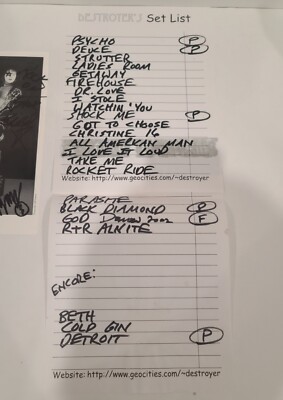 DESTROYER'S Set List
PSYCHO P
DEUCE P
STRUTTER
LADIES ROOM
GETAWAY
FIREHOUSE
DR. LOVE
I STOLE
WATCHIN' YOU
SHOCK ME P
GOT TO CHOOSE
CHRISTINE 16
ALL AMERICAN MAN
I LOVE IT LOUD
TAKE ME
ROCKET RIDE
Website: http://www.geocities.com/~destroyer
PARASITE
BLACK DIAMOND P
GOD F
R+R ALNITE
ENCORE:
BETH
COLD GIN
DETROIT P
Website: http://www.geocities.com/~destroyer